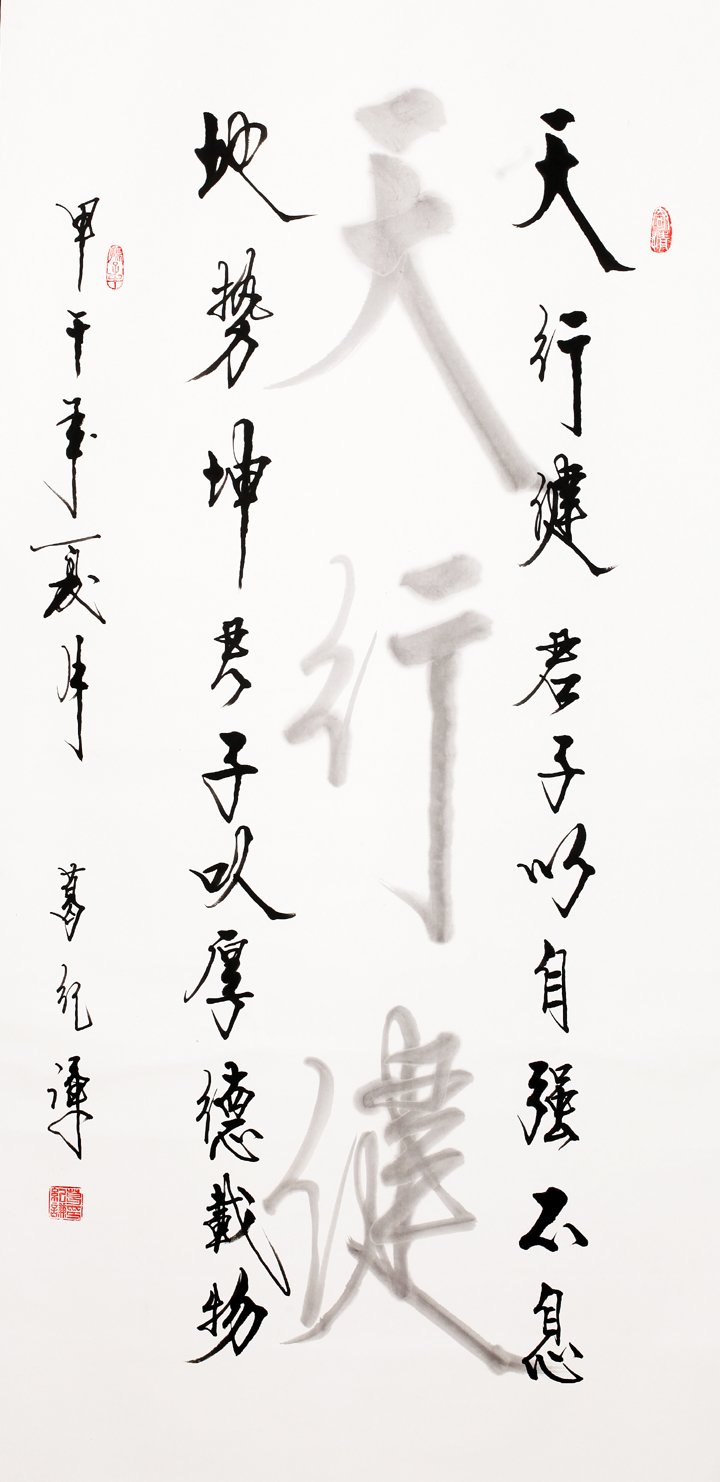 天行健君子以自强不息
天行健
地势坤君子以厚德载物
甲午年夏月 葛纪谦